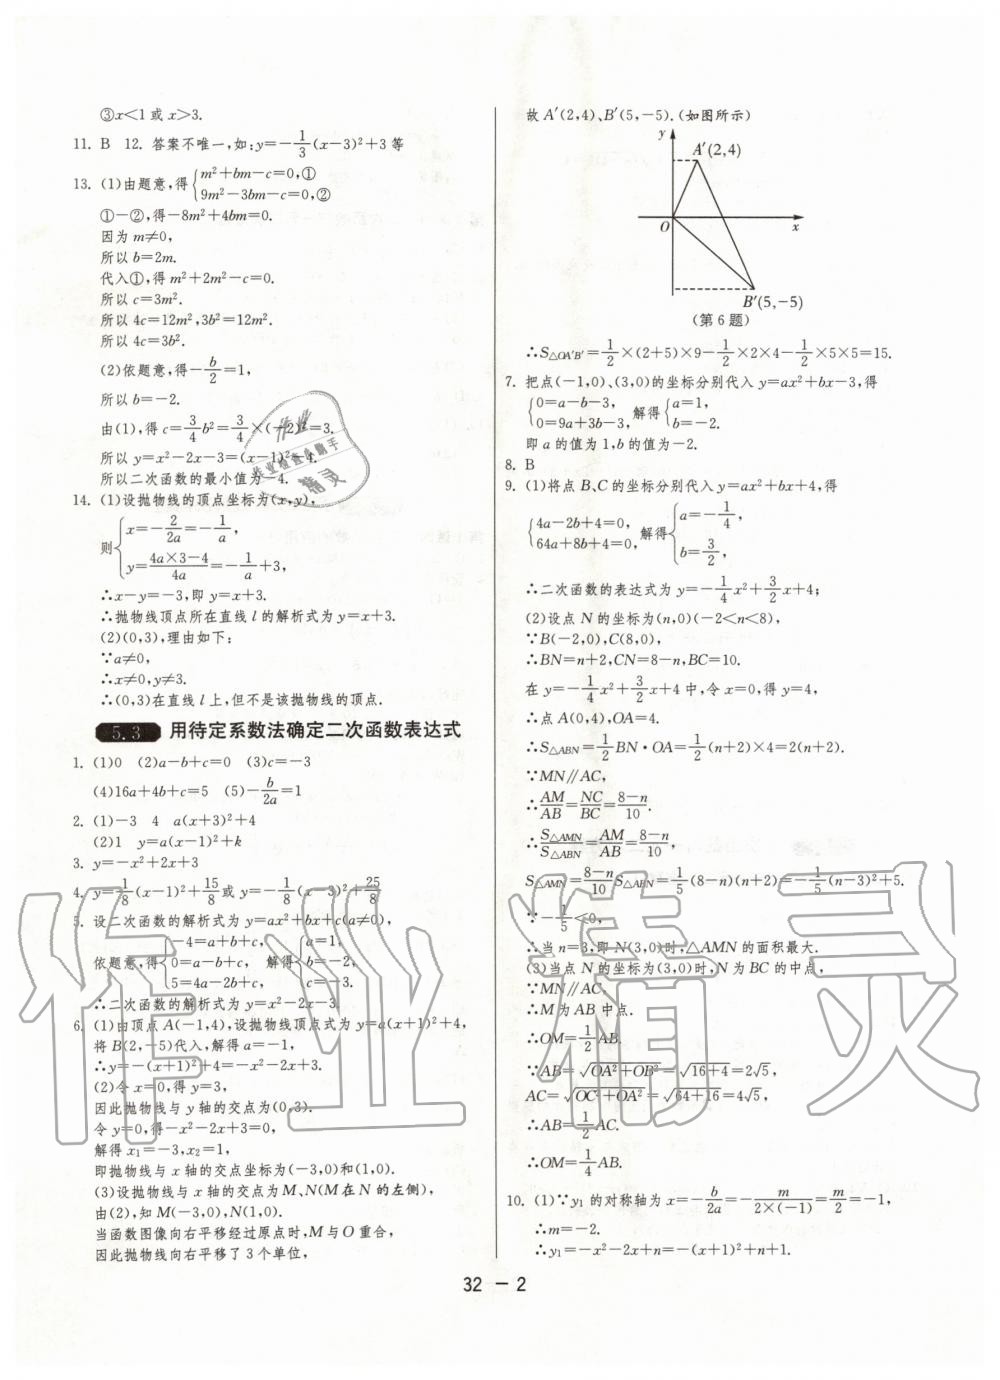 ③x<1或x>3.
11. B  12. 答案不唯一,如:y=-1/3(x-3)²+3等
13. (1)由题意,得{m²+bm-c=0,①
9m²-3bm-c=0,②
①-②,得-8m²+4bm=0.
因为m≠0,
所以b=2m.
代入①,得m²+2m²-c=0.
所以c=3m².
所以4c=12m²,3b²=12m².
所以4c=3b².
(2)依题意,得-b/2=1,
所以b=-2.
由(1),得c=3/4b²=3/4×(-2)²=3.
所以y=x²-2x-3=(x-1)²-4.
所以二次函数的最小值为-4.
14. (1)设抛物线的顶点坐标为(x,y),
则{x=-2/2a=-1/a,
y=4a×3-4/4a=-1/a+3,
∴x-y=-3,即y=x+3.
∴抛物线顶点所在直线l的解析式为y=x+3.
(2)(0,3),理由如下:
∵a≠0,
∴x≠0,y≠3.
∴(0,3)在直线l上,但不是该抛物线的顶点.
5.3 用待定系数法确定二次函数表达式
1. (1)0  (2)a-b+c=0  (3)c=-3
(4)16a+4b+c=5  (5)-b/2a=1
2. (1)-3  4  a(x+3)²+4
(2)1  y=a(x-1)²+k
3. y=-x²+2x+3
4. y=1/8(x-1)²+15/8或y=-1/8(x-3)²+25/8
5. 设二次函数的解析式为y=ax²+bx+c(a≠0),
依题意,得{-4=a+b+c,
0=a-b+c,
5=4a-2b+c,
解得{a=1,
b=-2,
c=-3.
∴二次函数的解析式为y=x²-2x-3.
6. (1)由顶点A(-1,4),设抛物线顶点式为y=a(x+1)²+4,
将B(2,-5)代入,解得a=-1,
∴y=-(x+1)²+4=-x²-2x+3.
(2)令x=0,得y=3,
因此抛物线与y轴的交点为(0,3).
令y=0,得-x²-2x+3=0,
解得x₁=-3,x₂=1,
即抛物线与x轴的交点坐标为(-3,0)和(1,0).
(3)设抛物线与x轴的交点为M、N(M在N的左侧),
由(2),知M(-3,0),N(1,0).
当函数图像向右平移经过原点时,M与O重合,
因此抛物线向右平移了3个单位,
故A′(2,4)、B′(5,-5).(如图所示)
y
A′(2,4)
O
x
B′(5,-5)
(第6题)
∴S△OA′B′=1/2×(2+5)×9-1/2×2×4-1/2×5×5=15.
7. 把点(-1,0)、(3,0)的坐标分别代入y=ax²+bx-3,得
{0=a-b-3,
0=9a+3b-3,
解得{a=1,
b=-2.
即a的值为1,b的值为-2.
8. B
9. (1)将点B、C的坐标分别代入y=ax²+bx+4,得
{4a-2b+4=0,
64a+8b+4=0,
解得{a=-1/4,
b=3/2,
∴二次函数的表达式为y=-1/4x²+3/2x+4;
(2)设点N的坐标为(n,0)(-2<n<8),
∵B(-2,0),C(8,0),
∴BN=n+2,CN=8-n,BC=10.
在y=-1/4x²+3/2x+4中,令x=0,得y=4,
∴点A(0,4),OA=4.
∴S△ABN=1/2BN·OA=1/2(n+2)×4=2(n+2).
∵MN∥AC,
∴AM/AB=NC/BC=8-n/10.
∴S△AMN/S△ABN=AM/AB=8-n/10,
S△AMN=8-n/10S△ABN=1/5(8-n)(n+2)=-1/5(n-3)²+5.
∵-1/5<0,
∴当n=3,即N(3,0)时,△AMN的面积最大.
(3)当点N的坐标为(3,0)时,N为BC的中点,
∵MN∥AC,
∴M为AB中点.
∴OM=1/2AB.
∵AB=√OA²+OB²=√16+4=2√5,
AC=√OC²+OA²=√64+16=4√5,
∴AB=1/2AC.
∴OM=1/4AB.
10. (1)∵y₁的对称轴为x=-b/2a=-m/2×(-1)=m/2=-1,
∴m=-2.
∴y₁=-x²-2x+n=-(x+1)²+n+1.
32 - 2
作业精灵